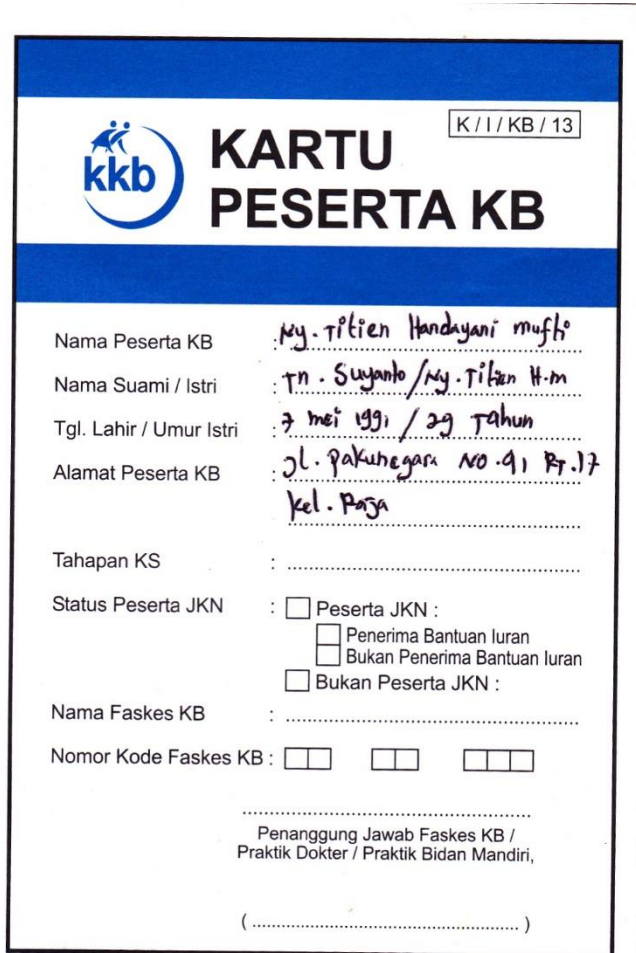 kkb
K / I / KB / 13
KARTU
PESERTA KB
Nama Peserta KB : Ny. Titien Handayani mufti
Nama Suami / Istri : Tn. Suyanto / Ny. Titien H.m
Tgl. Lahir / Umur Istri : 7 mei 1991 / 29 Tahun
Alamat Peserta KB : Jl. Pakunegara NO. 91 RT. 17
Kel. Raja
Tahapan KS : ................
Status Peserta JKN : Peserta JKN :
Penerima Bantuan Iuran
Bukan Penerima Bantuan Iuran
Bukan Peserta JKN :
Nama Faskes KB : ................
Nomor Kode Faskes KB :
Penanggung Jawab Faskes KB /
Praktik Dokter / Praktik Bidan Mandiri,
( ................ )